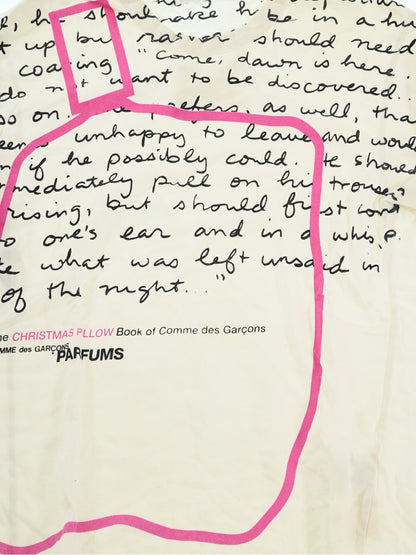 he should make he be in a hu
t up but rather should need
coaxing "Come, dawn is here
do not want to be discovered...
so on. He prefers, as well, tha
unhappy to leave and would
if he possibly could. He should
mmediately pull on his trouser
rising, but should first com
o one's ear and in a whisper
te what was left unsaid in
of the night..."
he CHRISTMAS PILLOW Book of Comme des Garçons
MME des GARÇONS
PARFUMS